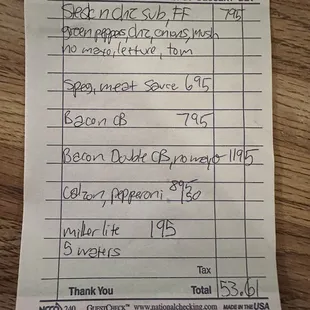 Steak n chz sub, FF 795
green peppers, chz, onions, mush
no mayo, lettuce, tom
Spag, meat sauce 695
Bacon CB 795
Bacon Double CB, no mayo 1195
Calzon, pepperoni 895 150
miller lite 195
5 waters
Tax
Thank You Total 53.61
240 GUESTCHECK™ www.nationalchecking.com MADE IN THE USA